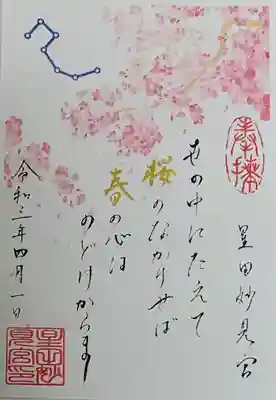 奉拝
星田妙見宮
世の中にたえて
桜
のなかりせば
春
の心は
のどけからまし
令和三年四月一日
星田妙
見宮印